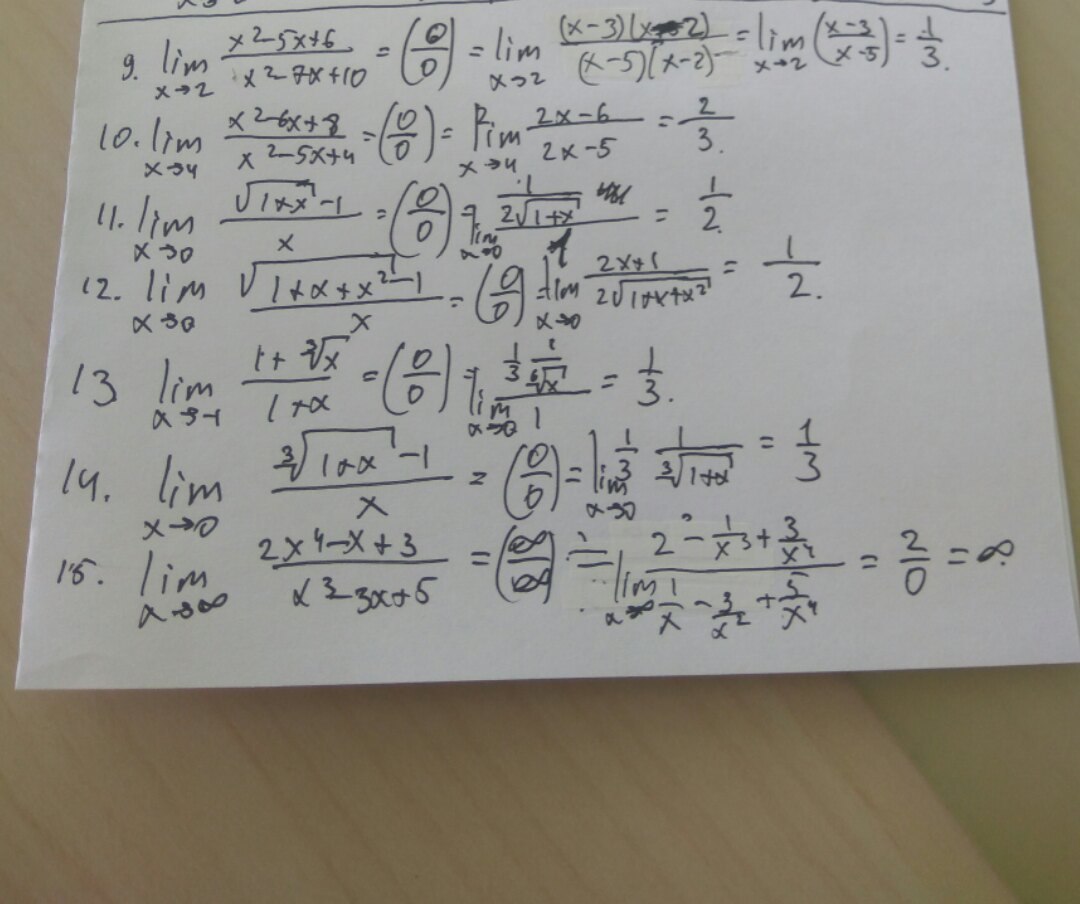 9. lim x→2 (x²-5x+6)/(x²-7x+10) = (0/0) = lim x→2 ((x-3)(x-2))/((x-5)(x-2)) = lim x→2 ((x-3)/(x-5)) = 1/3.
10. lim x→4 (x²-6x+8)/(x²-5x+4) = (0/0) = lim x→4 (2x-6)/(2x-5) = 2/3.
11. lim x→0 (√(1+x) -1)/x = (0/0) = lim x→0 (1/(2√(1+x)))/1 = 1/2.
12. lim x→0 √(1+x+x²-1)/x = (0/0) = lim x→0 (2x+1)/(2√(1+x+x²)) = 1/2.
13 lim x→-1 (1+∛x)/(1+x) = (0/0) = lim x→0 (1/3 1/∛x)/1 = 1/3.
14. lim x→0 (∛(1+x) -1)/x = (0/0) = lim x→0 1/3 1/∛(1+x) = 1/3
15. lim x→∞ (2x⁴-x+3)/(x³-3x+5) = (∞/∞) = lim x→∞ (2 - 1/x³ + 3/x⁴)/(1/x - 3/x² + 5/x⁴) = 2/0 = ∞